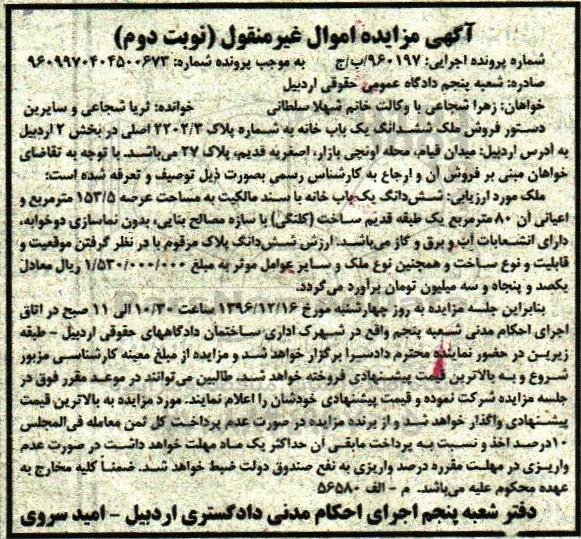 آگهی مزایده اموال غیرمنقول (نوبت دوم)
شماره پرونده اجرایی: ۹۶۰۱۹۷/ب/ج به موجب پرونده شماره: ۹۶۰۹۹۷۰۴۰۴۵۰۰۶۷۳
صادره: شعبه پنجم دادگاه عمومی حقوقی اردبیل
خواهان: زهرا شجاعی با وکالت خانم شهلا سلطانی خوانده: ثریا شجاعی و سایرین
دستور فروش ملک ششدانگ یک باب خانه به شماره پلاک ۲۲۰۲/۳ اصلی در بخش ۲ اردبیل
به آدرس اردبیل: میدان قیام، محله اونچی بازار، اصغریه قدیم، پلاک ۲۷ می‌باشد. با توجه به تقاضای
خواهان مبنی بر فروش آن و ارجاع به کارشناس رسمی بصورت ذیل توصیف و تعرفه شده است:
ملک مورد ارزیابی: شش‌دانگ یک باب خانه با سند مالکیت به مساحت عرصه ۱۵۳/۵ مترمربع و
اعیانی آن ۸۰ مترمربع یک طبقه قدیم ساخت (کلنگی) با سازه مصالح بنایی، بدون نماسازی دوخوابه،
دارای انشعابات آب و برق و گاز می‌باشد. ارزش شش‌دانگ پلاک مرقوم با در نظر گرفتن موقعیت و
قابلیت و نوع ساخت و همچنین نوع ملک و سایر عوامل موثر به مبلغ ۱/۵۳۰/۰۰۰/۰۰۰ ریال معادل
یکصد و پنجاه و سه میلیون تومان برآورد می‌گردد.
بنابراین جلسه مزایده به روز چهارشنبه مورخ ۱۳۹۶/۱۲/۱۶ ساعت ۱۰/۳۰ الی ۱۱ صبح در اتاق
اجرای احکام مدنی شعبه پنجم واقع در شهرک اداری ساختمان دادگاههای حقوقی اردبیل - طبقه
زیرین در حضور نماینده محترم دادسرا برگزار خواهد شد و مزایده از مبلغ معینه کارشناسی مزبور
شروع و به بالاترین قیمت پیشنهادی فروخته خواهد شد. طالبین می‌توانند در موعد مقرر فوق در
جلسه مزایده شرکت نموده و قیمت پیشنهادی خودشان را اعلام نمایند. مورد مزایده به بالاترین قیمت
پیشنهادی واگذار خواهد شد و از برنده مزایده در صورت عدم پرداخت کل ثمن معامله فی‌المجلس
۱۰درصد اخذ و نسبت به پرداخت مابقی آن حداکثر یک ماه مهلت خواهد داشت در صورت عدم
واریزی در مهلت مقرره درصد واریزی به نفع صندوق دولت ضبط خواهد شد. ضمناً کلیه مخارج به
عهده محکوم علیه می‌باشد. م - الف ۵۶۵۸۰
دفتر شعبه پنجم اجرای احکام مدنی دادگستری اردبیل - امید سروی